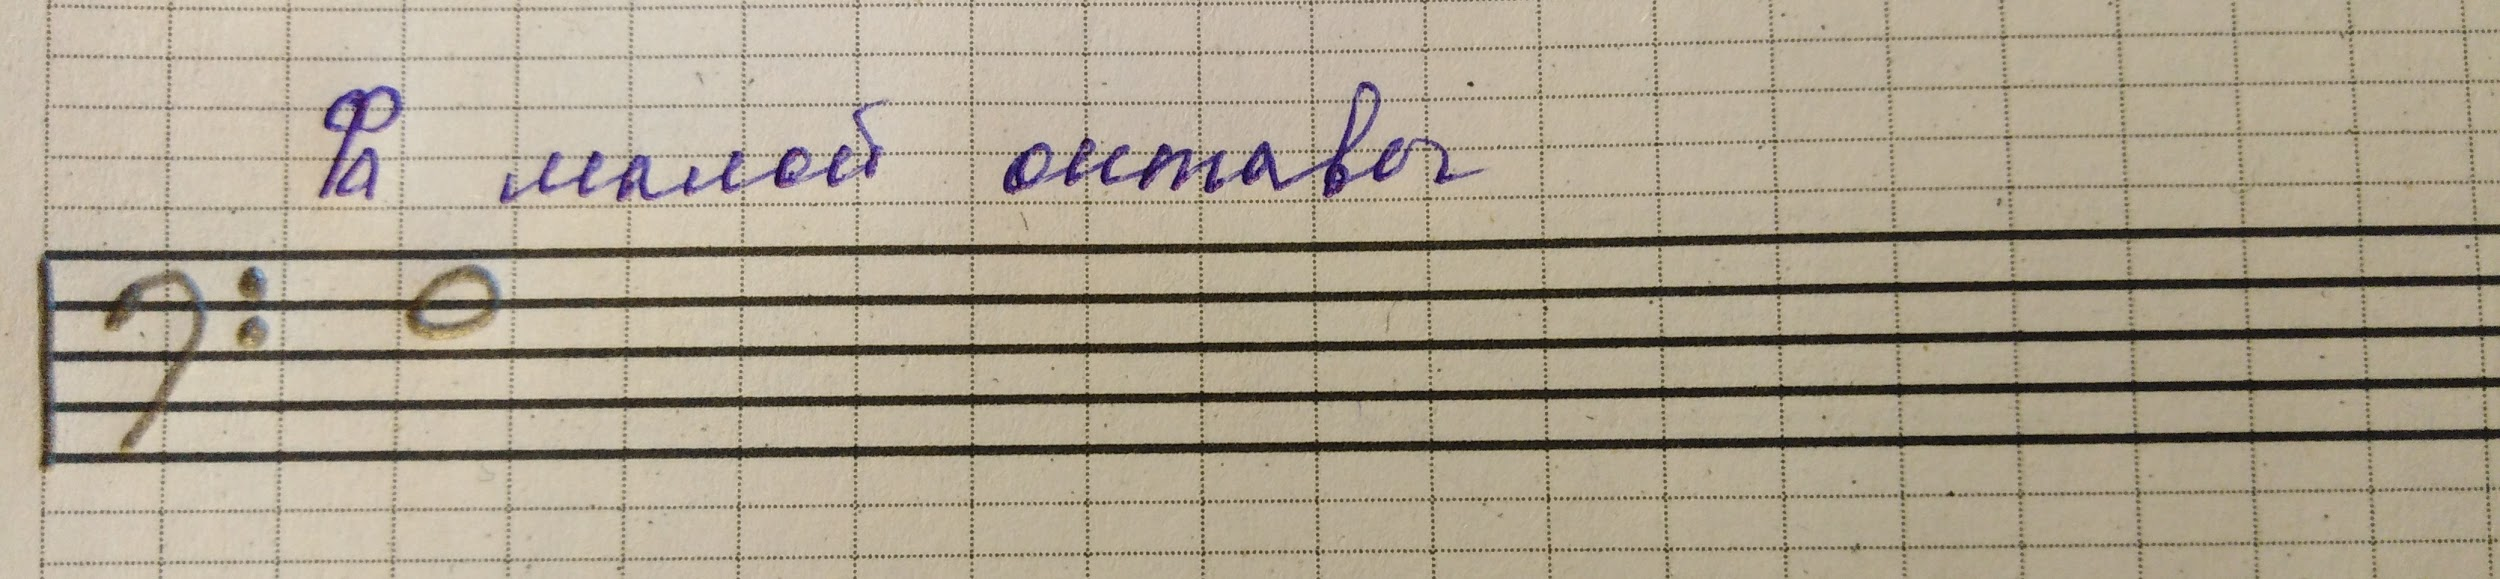 Фа малой октавы